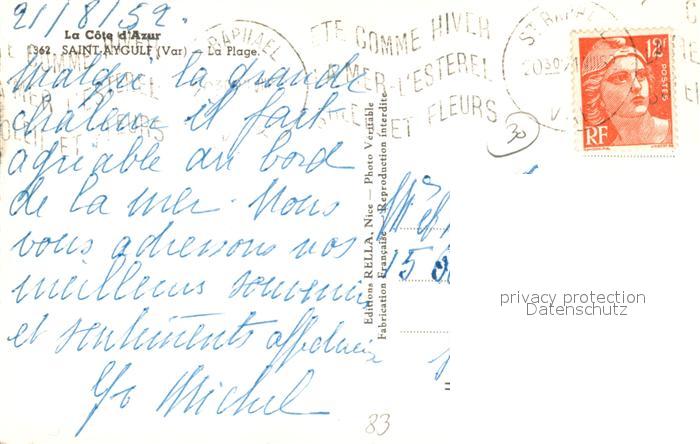 21/8/52.
La Côte d'Azur
362. SAINT-AYGULF (Var) — La Plage.
Malgré la grande
chaleur il fait
agréable au bord
de la mer. Nous
vous adressons nos
meilleurs souvenirs
et sentiments affectueux
Michel
Editions RELLA, Nice — Photo Véritable
Fabrication Française — Reproduction interdite
ETE COMME HIVER
MER-L'ESTEREL
ET FLEURS
ST RAPHAEL
12F
POSTES
RF
30
15
privacy protection
Datenschutz
83